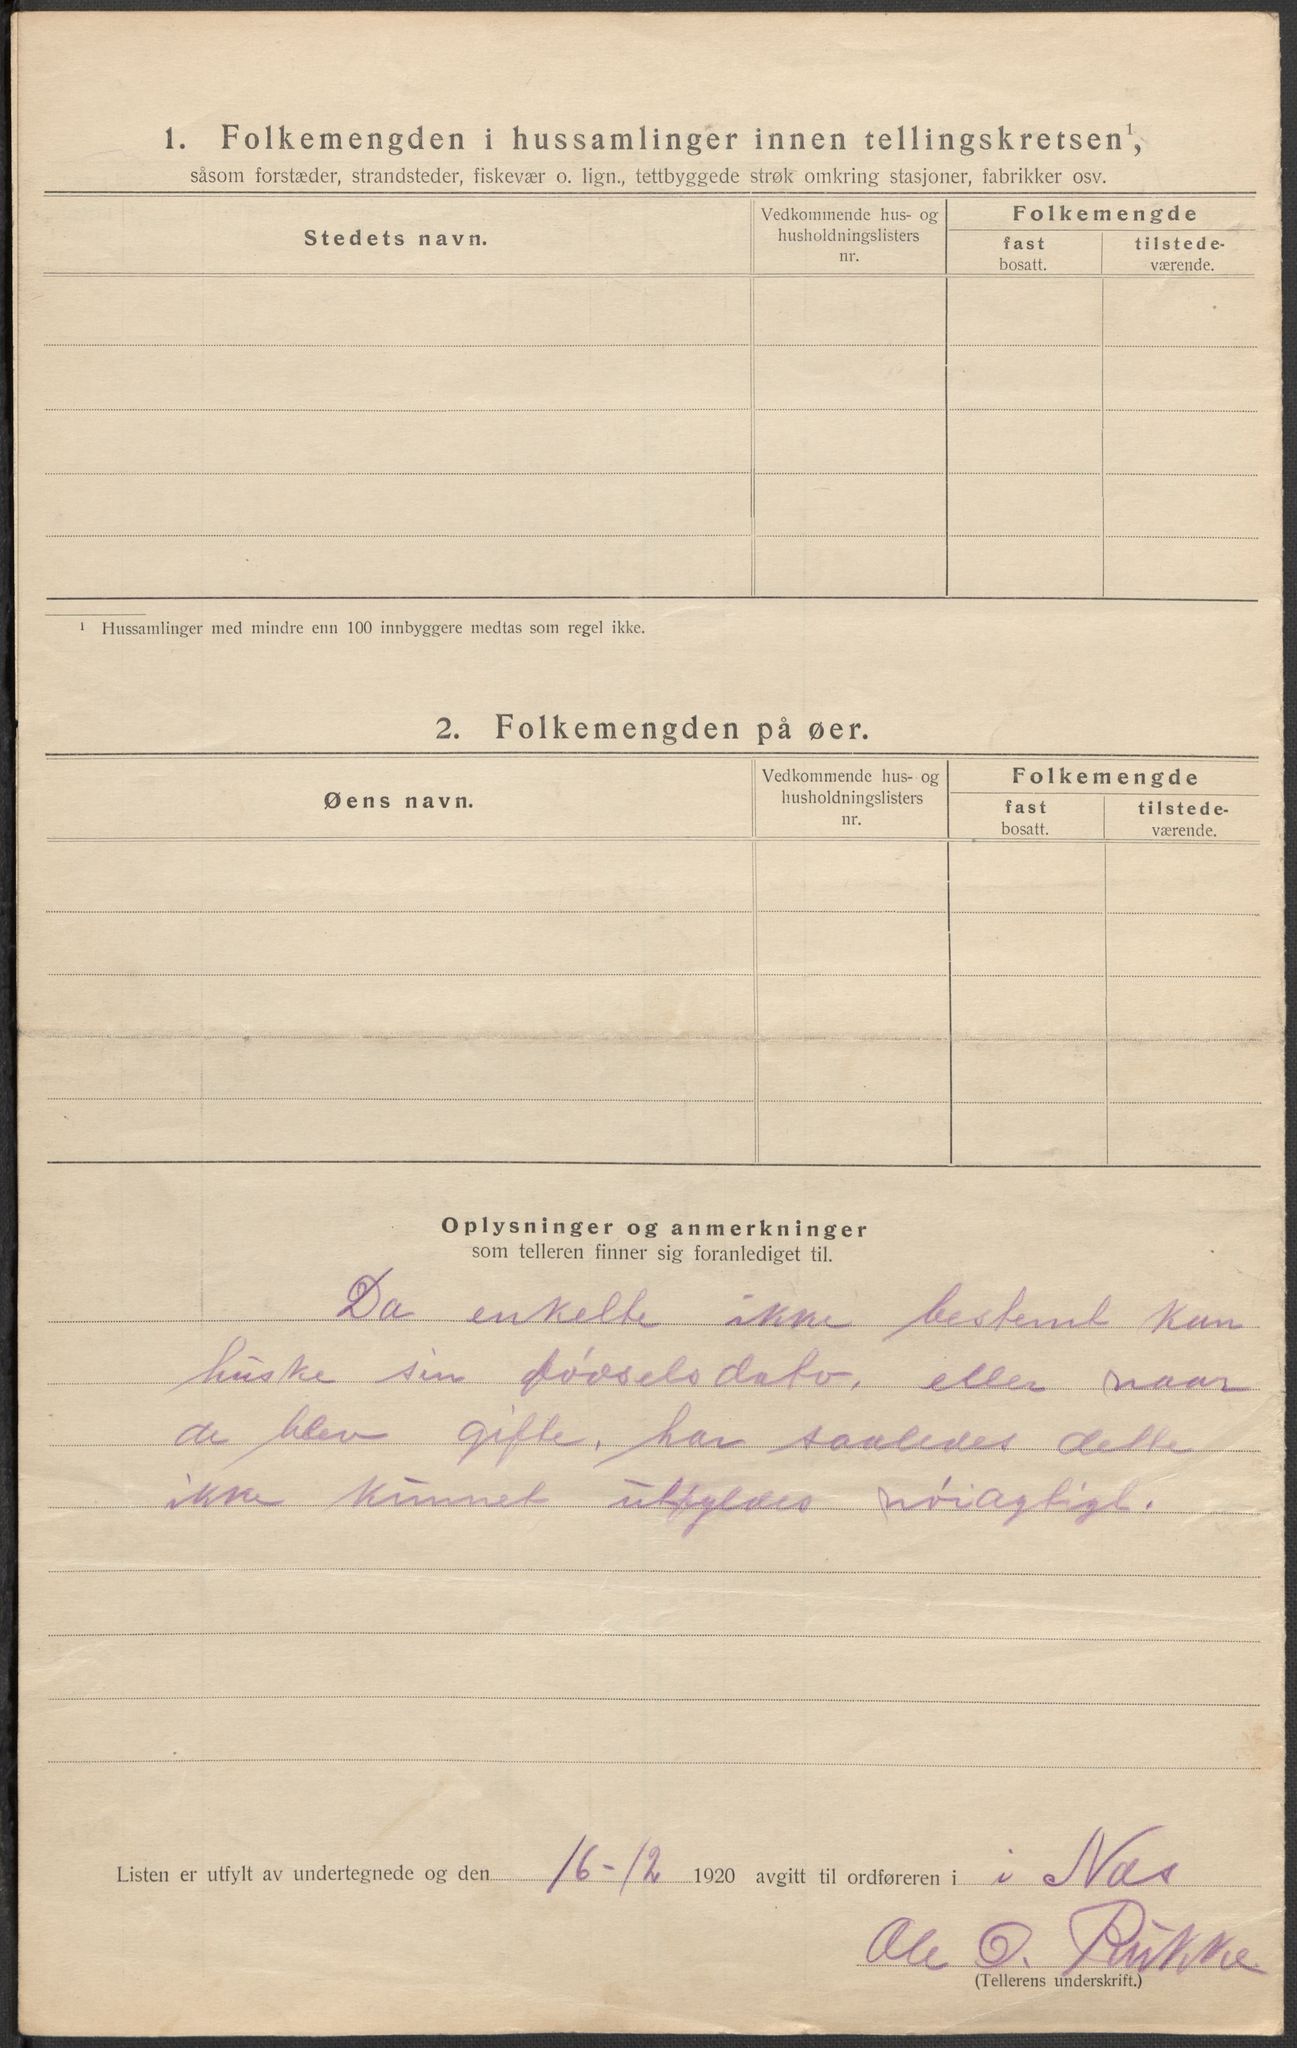 1. Folkemengden i hussamlinger innen tellingskretsen¹,
såsom forstæder, strandsteder, fiskevær o. lign., tettbyggede strøk omkring stasjoner, fabrikker osv.
Stedets navn.
Vedkommende hus- og
husholdningslisters
nr.
Folkemengde
fast
bosatt.
tilstede-
værende.
¹ Hussamlinger med mindre enn 100 innbyggere medtas som regel ikke.
2. Folkemengden på øer.
Øens navn.
Vedkommende hus- og
husholdningslisters
nr.
Folkemengde
fast
bosatt.
tilstede-
værende.
Oplysninger og anmerkninger
som telleren finner sig foranlediget til.
Da enkelte ikke bestemt kan
huske sin fødselsdato, eller naar
de blev gifte, har saaledes dette
ikke kunnet utfyldes nøiagtigt.
Listen er utfylt av undertegnede og den 16-12 1920 avgitt til ordføreren i i Nes
Ole O. Rukke
(Tellerens underskrift.)